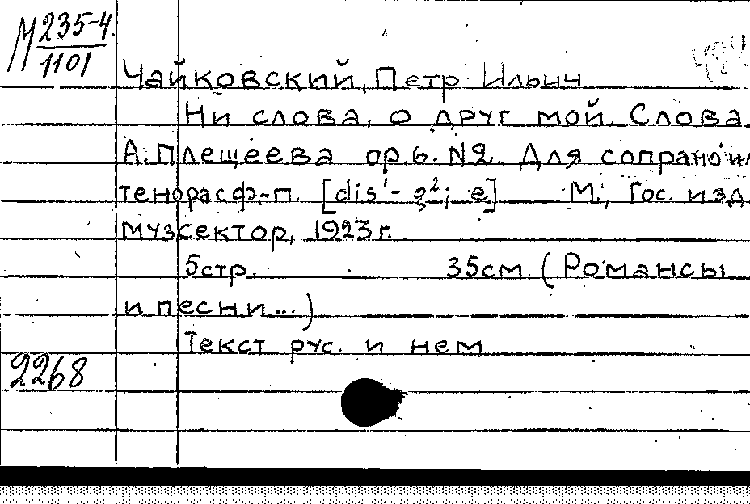 М 235-4.
1101
Чайковский, Петр Ильич
Ни слова, о друг мой. Слова
А. Плещеева ор.6. №2. Для сопрано ил
тенора с ф-п. [dis¹- g²; e] М., Гос. изд.
музсектор, 1923 г.
5 стр. 35 см (Романсы
и песни...)
Текст рус. и нем
2268